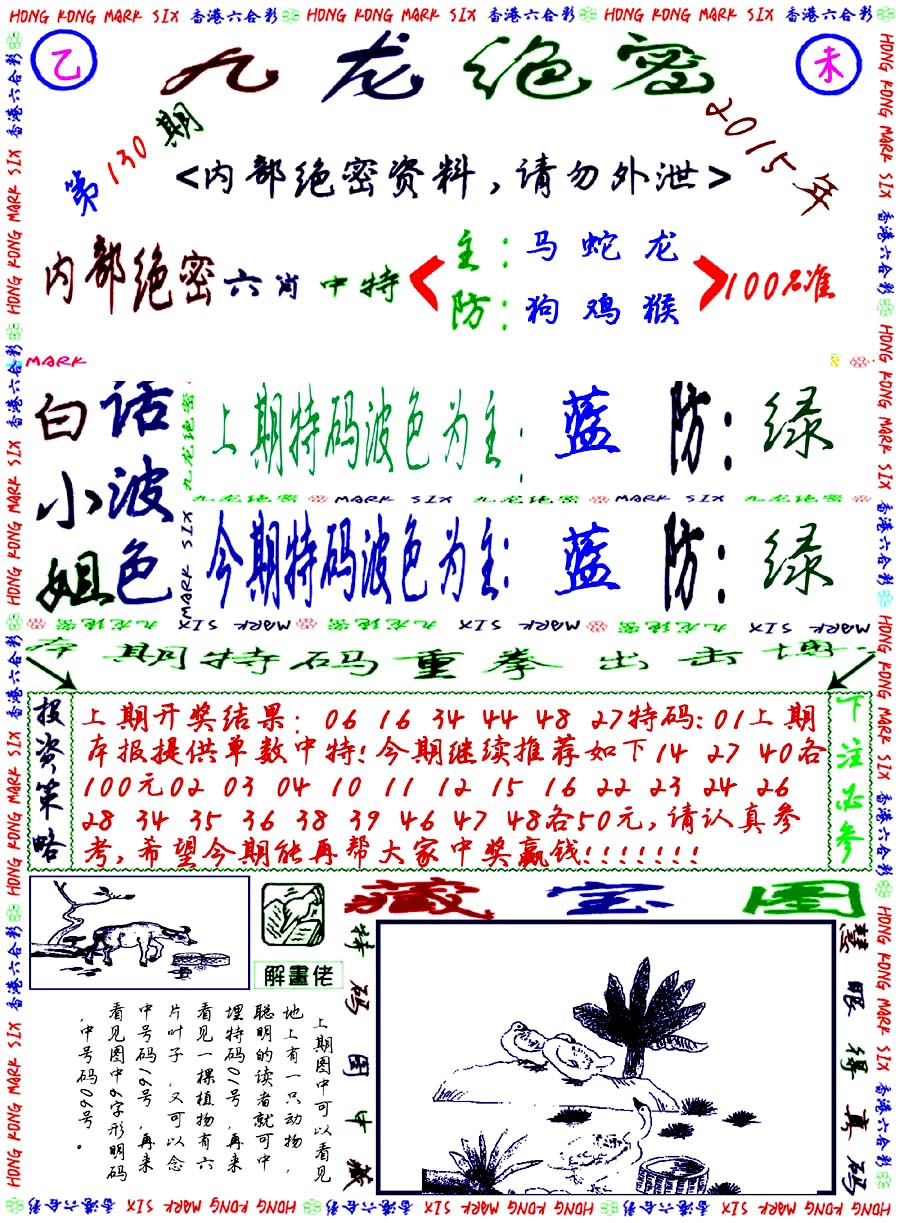 HONG KONG MARK SIX 香港六合彩 HONG KONG MARK SIX 香港六合彩 HONG KONG MARK SIX 香港六合彩
乙
九龙绝密
未
第130期
2015年
<内部绝密资料,请勿外泄>
内部绝密六肖中特
主:马蛇龙
防:狗鸡猴
100%准
MARK
白话
小波
姐色
九龙绝密
MARK SIX
上期特码波色为主:蓝 防:绿
九龙绝密 MARK SIX 九龙绝密 MARK SIX 九龙绝密
今期特码波色为主:蓝 防:绿
MARK SIX 九龙绝密 MARK SIX 九龙绝密 MARK SIX 九龙绝密
本期特码重拳出击博
投资策略
上期开奖结果: 06 16 34 44 48 27特码:01上期
本报提供单数中特!今期继续推荐如下14 27 40各
100元02 03 04 10 11 12 15 16 22 23 24 26
28 34 35 36 38 39 46 47 48各50元,请认真参
考,希望今期能再帮大家中奖赢钱!!!!!!!
下注必参
藏宝图
解畫佬
上期图中可以看见
地上有一只动物,
聪明的读者就可中
埋特码01号,再来
看见一棵植物有六
片叶子,又可以念
中号码16号,再来
看见图中6字形明码
,中号码06号。
特码图中藏
慧眼得真码
HONG KONG MARK SIX 香港六合彩 HONG KONG MARK SIX 香港六合彩 HONG KONG MARK SIX 香港六合彩 HONG KONG MARK SIX 香港六合彩
HONG KONG MARK SIX 香港六合彩 HONG KONG MARK SIX 香港六合彩 HONG KONG MARK SIX 香港六合彩 HONG KONG MARK SIX 香港六合彩
HONG KONG MARK SIX 香港六合彩 HONG KONG MARK SIX 香港六合彩 HONG KONG MARK SIX 香港六合彩